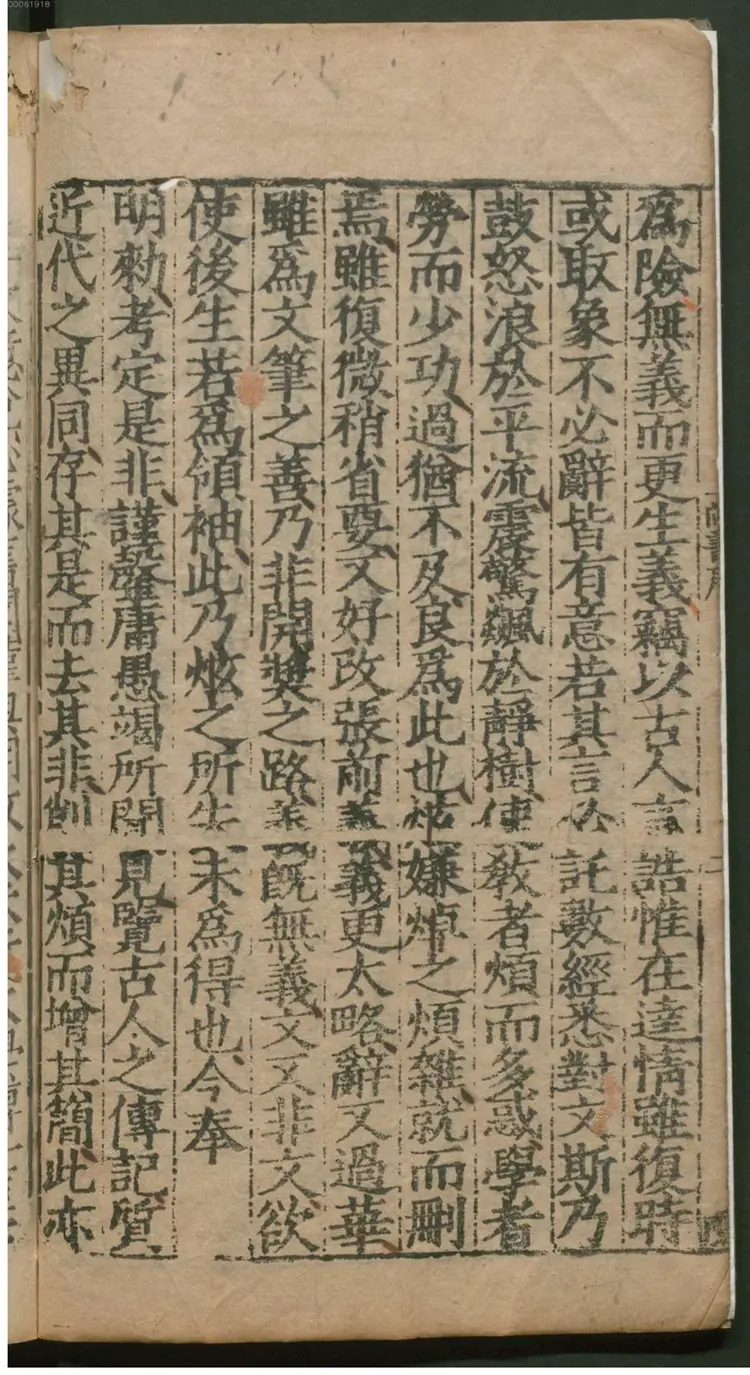 00061918
爲險無義而更生義竊以古人言誥惟在達情雖復時
或取象不必辭皆有意若其言必託數經悉對文斯乃
鼓怒浪於平流震驚飆於靜樹使教者煩而多惑學者
勞而少功過猶不及良爲此也炫嫌焯之煩雜就而刪
焉雖復微稍省要又好改張前義義更太略辭又過華
雖爲文筆之善乃非開奬之路義旣無義文又非文欲
使後生若爲領袖此乃炫之所失未爲得也今奉
明勑考定是非謹罄庸愚竭所聞見覽古人之傳記質
近代之異同存其是而去其非削其煩而增其簡此亦